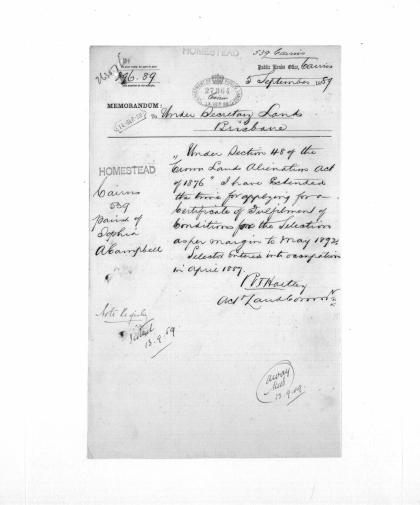 HOMESTEAD
539 Cairns
Public Lands Office, Cairns
96.89
5 September 1889
27364
MEMORANDUM:
To Under Secretary Lands
Brisbane
"Under Section 48 of the
Crown Lands Alienation Act
of 1876" I have Extended
the time for applying for a
Certificate of Fulfilment of
Conditions for the Selection
as per margin to May 1892.
Selector entered into occupation
in April 1887.
HOMESTEAD
Cairns
539
parish of
Sophia
A Campbell
Hartley
Act Land Comm
Note
13.9.89
away
13.9.89